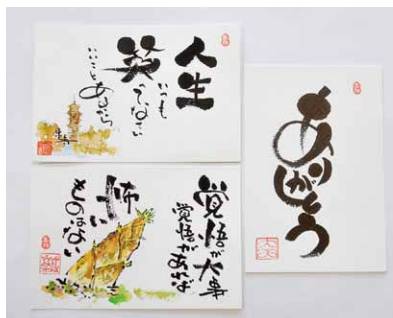 人生
いつも
笑ってなさい
いいこと
あるから
覚悟が大事
覚悟があれば
怖い
ものはない
ありがとう